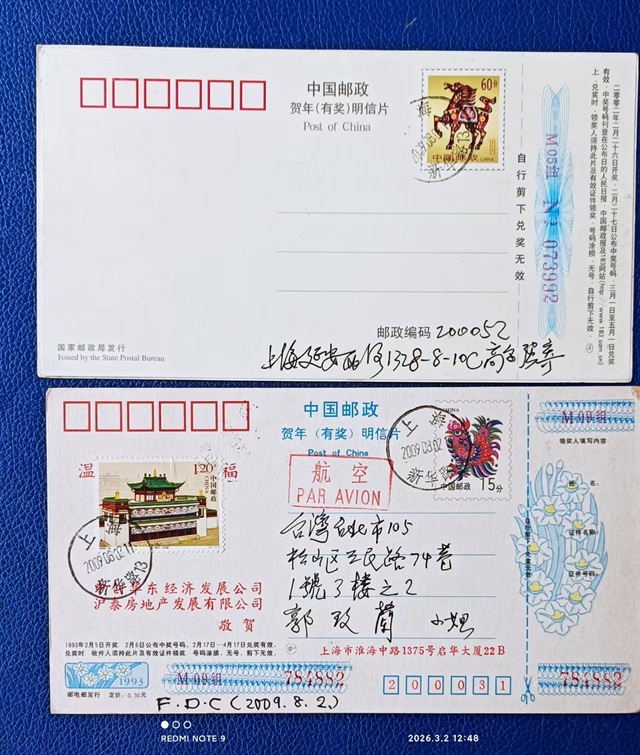 中国邮政
贺年(有奖)明信片
Post of China
60分
中国邮政
CHINA
自行剪下兑奖无效
M05组 No 073992
二零零二年二月二十六日开奖,二月二十七日公布中奖号码,三月一日至五月一日兑奖
有效。中奖号码刊登在公布日的人民日报、中国邮政报及183网站(http://www.183.com.cn)
上。兑奖时,领奖人须持此片及有效证件领奖,号码涂损、无号、自行剪下无效。
邮政编码 200052
国家邮政局发行
Issued by the State Postal Bureau
上海延安西路1328-8-10C
中国邮政
贺年(有奖)明信片
Post of China
M 09组
领奖人填写内容
温 福
1.20
中国邮政
上海
2009.08.02
新华路
CHINA
中国邮政 15分
航空
PAR AVION
台湾台北市105
松山区三民路74巷
1號3樓之2
郭玫蘭 小姐
姓名:
证件名称:
证件号码:
自行剪下兑奖无效
上海
2009.08.02.11
新华路13
华东经济发展公司
沪泰房地产发展有限公司
敬贺
上海市淮海中路1375号启华大厦22B
1993年2月5日开奖,2月6日公布中奖号码,2月17日—4月17日兑奖有效。
兑奖时,收件人须持此片及有效证件领奖,号码涂损、无号、剪下无效。
1993
邮电部发行 定价:0.50元
M 09组 784882
200031
784882
F.D.C (2009.8.2.)
REDMI NOTE 9
2026.3.2 12:48